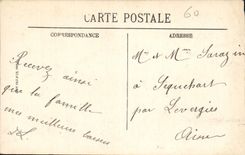 60
CARTE POSTALE
CORRESPONDANCE
ADRESSE
Recevez ainsi
que la famille
mes meilleurs baisers
Mr et Mme Sarazin
à Sequehart
par Levergies
Aisne